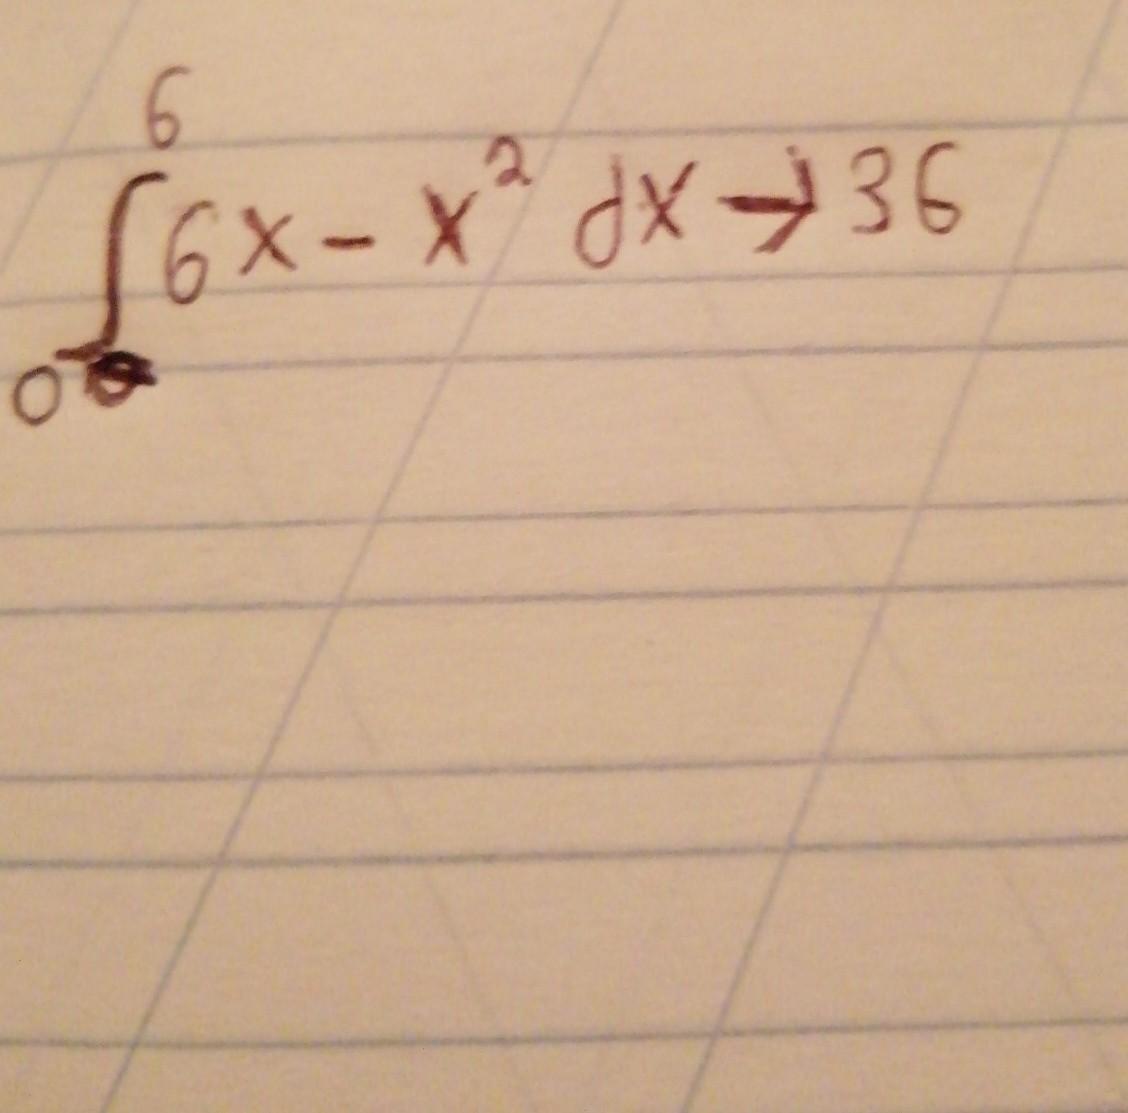 ∫₀⁶ 6x - x² dx → 36